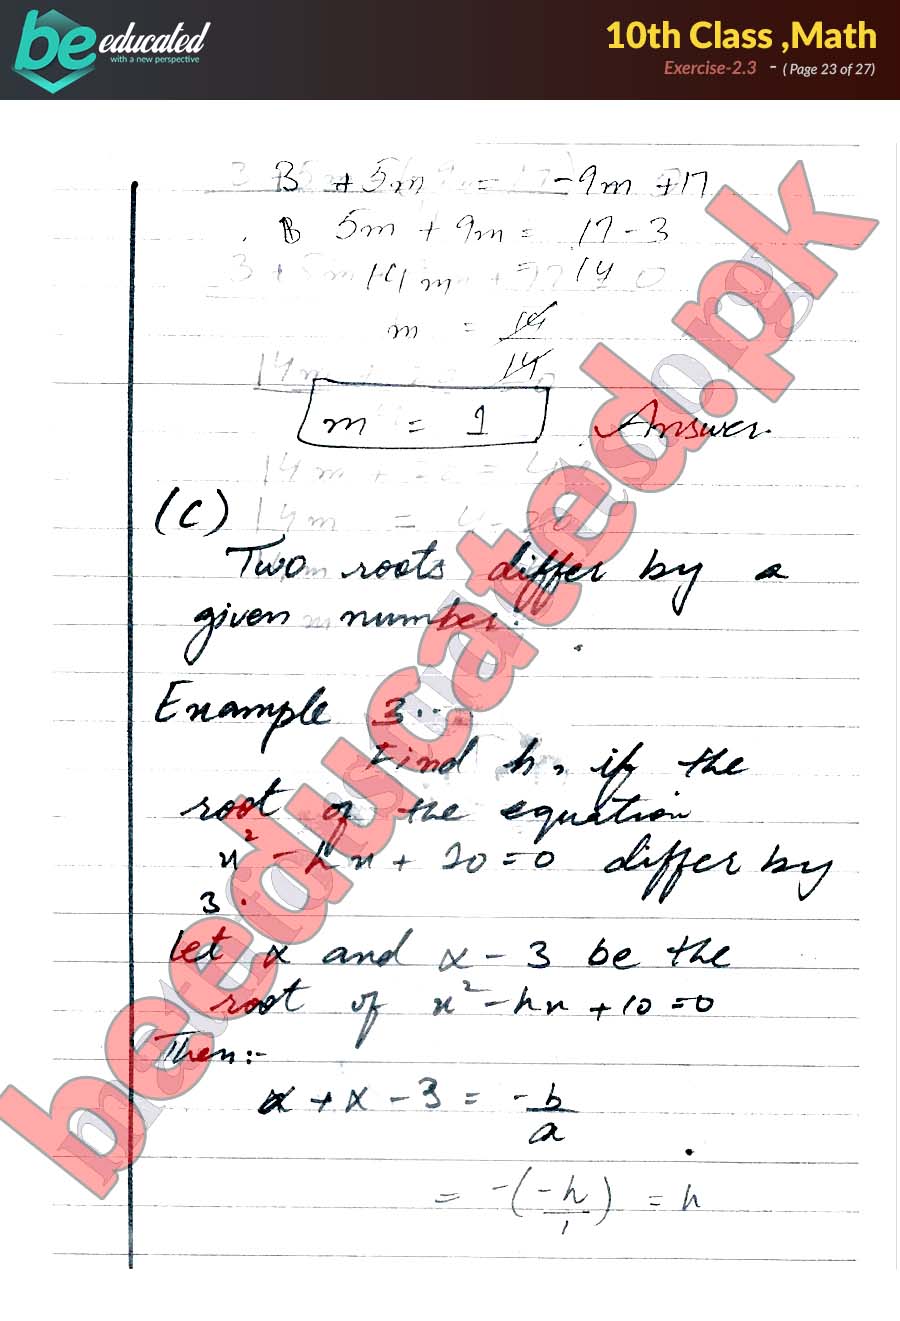 be educated
with a new perspective
10th Class ,Math
Exercise-2.3 - ( Page 23 of 27)
3 + 5m = -9m + 17
5m + 9m = 17 - 3
14m = 14
m = 14/14
m = 1 Answer.
(C)
Two roots differ by a
given number.
Example 3.
Find h, if the
root of the equation
x² - hx + 10 = 0 differ by
3.
Let α and α - 3 be the
root of x² - hx + 10 = 0
Then:-
α + α - 3 = -b/a
= -(-h/1) = h
beeducated.pk